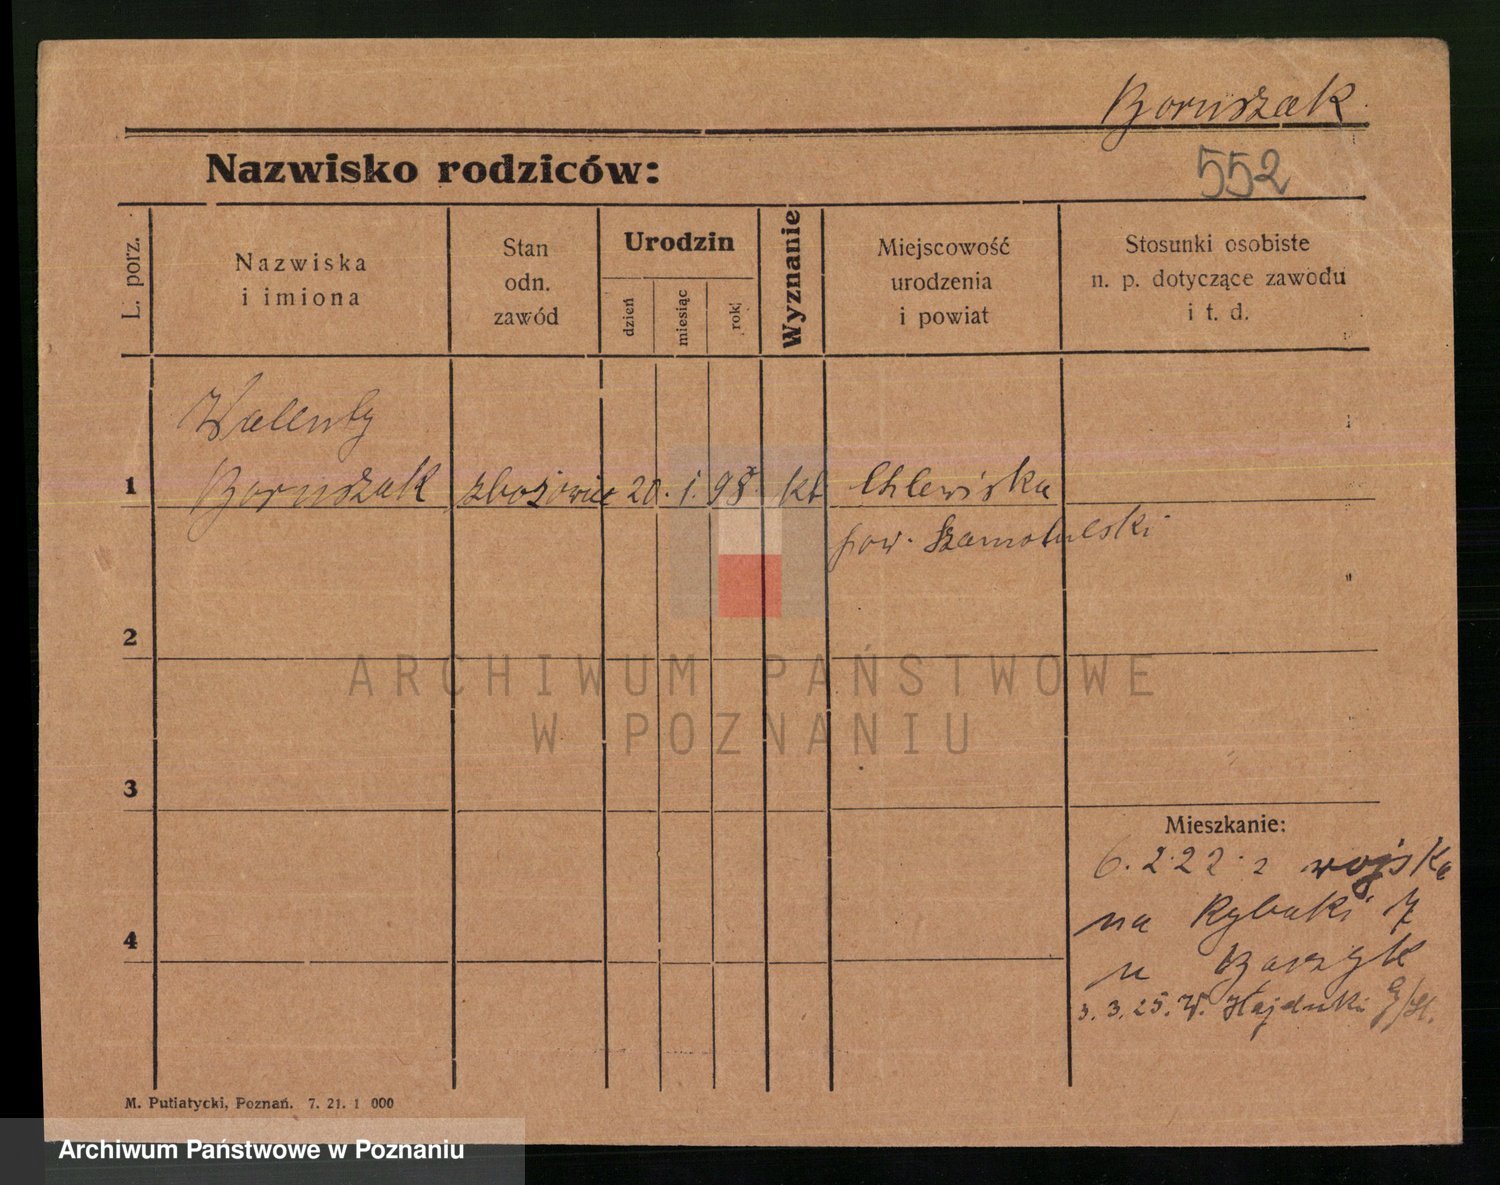 Boruszak
Nazwisko rodziców:
552
L. porz.
Nazwiska
i imiona
Stan
odn.
zawód
Urodzin
dzień
miesiąc
rok
Wyznanie
Miejscowość
urodzenia
i powiat
Stosunki osobiste
n. p. dotyczące zawodu
i t. d.
Walenty
1 Boruszak zbożowiec 20. 1. 98 kt Chlewiska
pow. Szamotulski
2
ARCHIWUM PAŃSTWOWE
W POZNANIU
3
Mieszkanie:
6. 2 22 z wojska
na Rybaki 7
4
u
3. 3. 25. W. Hajduki G/Sl.
M. Putiatycki, Poznań. 7. 21. 1 000
Archiwum Państwowe w Poznaniu